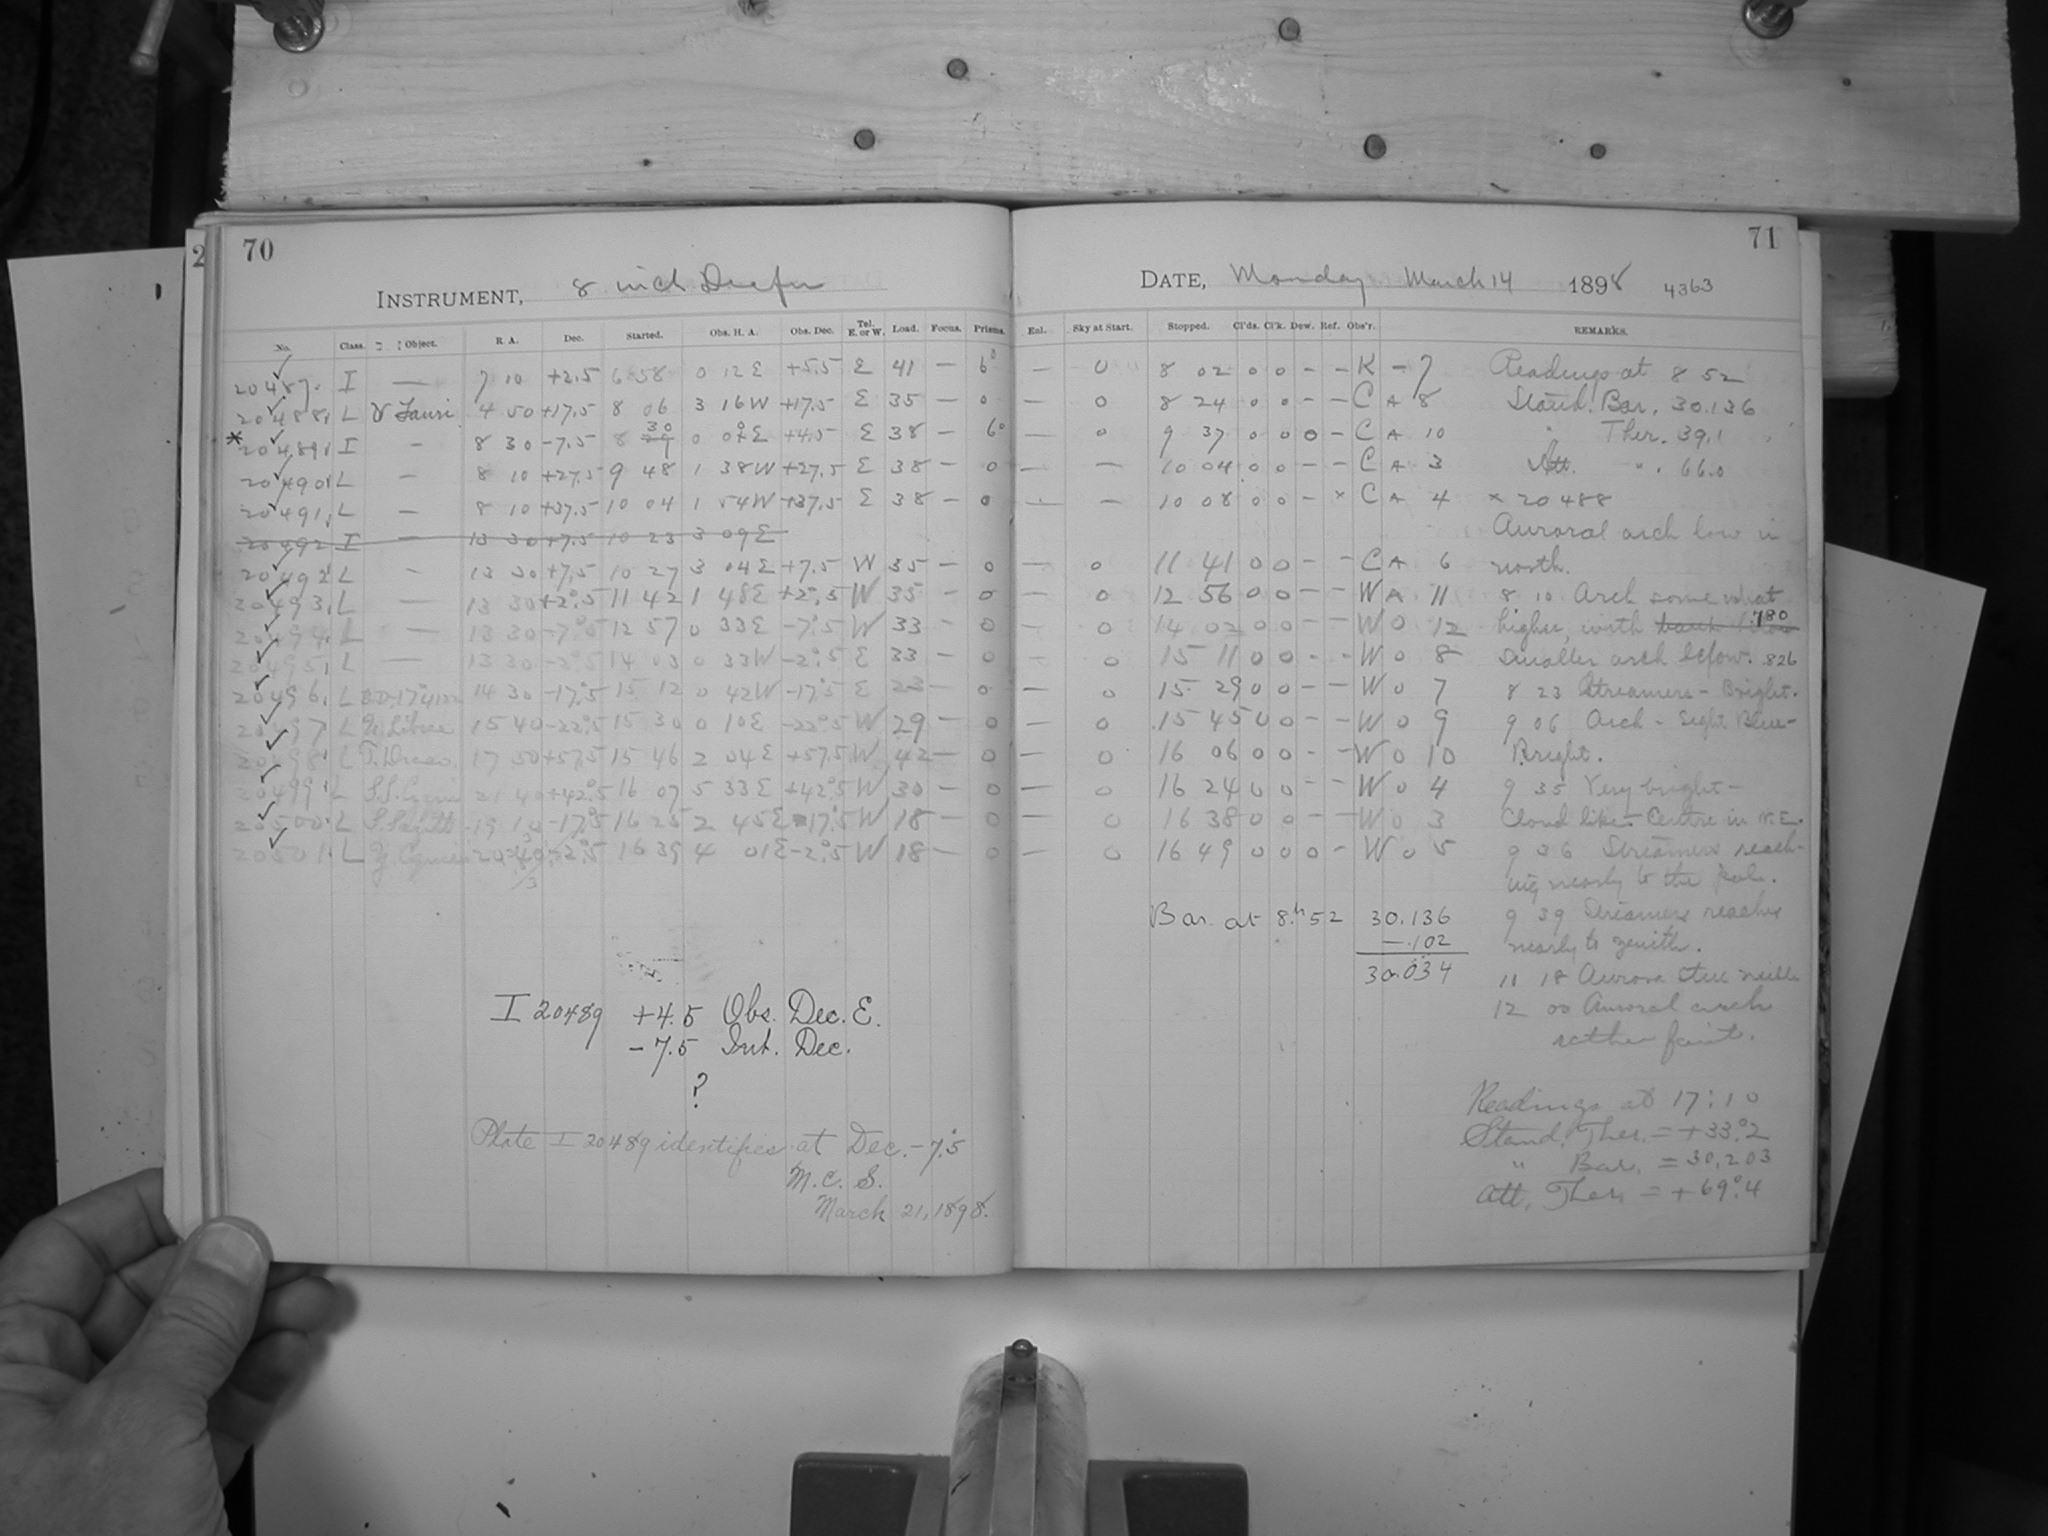 70
INSTRUMENT, 8 inch Draper
No. Class. Object. R. A. Dec. Started. Obs. H. A. Obs. Dec. Tel. E. or W. Load. Focus. Prisms.
20487. I — 7 10 +2.5 6 58 0 12 E +5.5 E 41 — 6°
20488, L V Tauri 4 50 +17.5 8 06 3 16 W +17.5 E 35 — 0
* 20489, I — 8 30 -7.5 8 29 30 0 E +4.5 E 38 — 6°
20490, L — 8 10 +27.5 9 48 1 38 W +27.5 E 38 — 0
20491, L — 8 10 +37.5 10 04 1 54 W +37.5 E 38 — 0
20492 I — 13 30 +7.5 10 23 3 09 E
20492 L — 13 30 +7.5 10 27 3 04 E +7.5 W 35 — 0
20493, L — 13 30 +2°.5 11 42 1 48 E +2°.5 W 35 — 0
20494, L — 13 30 -7°.5 12 57 0 33 E -7°.5 W 33 — 0
20495, L — 13 30 -2°.5 14 03 0 33 W -2°.5 E 33 — 0
20496, L 14 30 -17°.5 15 12 0 42 W -17°.5 E 23 — 0
20497 L Librae 15 40 -22°.5 15 30 0 10 E -22°.5 W 29 — 0
20498 L T. Draco. 17 50 +57.5 15 46 2 04 E +57.5 W 42 — 0
20499 L S.S. Cygni 21 40 +42°.5 16 07 5 33 E +42°.5 W 30 — 0
20500 L 19 10 -17°.5 16 25 2 45 E -17°.5 W 18 — 0
20501. L Cygni 20 -2°.5 16 39 4 01 E -2°.5 W 18 — 0
I 20489 +4.5 Obs. Dec. E.
-7.5 Int. Dec.
?
Plate I 20489 identifies at Dec. -7°.5
M. C. S.
March 21, 1898.
71
DATE, Monday March 14 1898 4363
Enl. Sky at Start. Stopped. Cl'ds. Cl'k. Dew. Ref. Obs'r. REMARKS.
— 0 8 02 0 0 — — K — 7 Readings at 8 52
— 0 8 24 0 0 — — C A 8 Stand. Bar. 30.136
— 0 9 37 0 0 0 — C A 10 " Ther. 39.1
— — 10 04 0 0 — — C A 3 Att. " 66.0
— — 10 08 0 0 — × C A 4 × 20488
Auroral arch low in
— 0 11 41 0 0 — — C A 6 north.
— 0 12 56 0 0 — — W A 11 8 10 Arch some what
— 0 14 02 0 0 — — W O 12 higher, with 780
— 0 15 11 0 0 — — W O 8 smaller arch below. 826
— 0 15 29 0 0 — — W O 7 8 23 Streamers — Bright.
— 0 15 45 0 0 — — W O 9 9 06 Arch — Light Blue —
— 0 16 06 0 0 — — W O 10 Bright.
— 0 16 24 0 0 — — W O 4 9 35 Very bright —
— 0 16 38 0 0 — — W O 3 Cloud like — Centre in N.E.
— 0 16 49 0 0 0 — W O 5 9 36 Streamers reach-
ing nearly to the pole.
Bar. at 8.h 52 30.136
—.102
30.034
9 39 Streamers reaches
nearly to zenith.
11 18 Aurora still visible
12 00 Auroral arch
rather faint.
Readings at 17:10
Stand. Ther. = +33°.2
" Bar. = 30.203
Att. Ther. = +69°.4